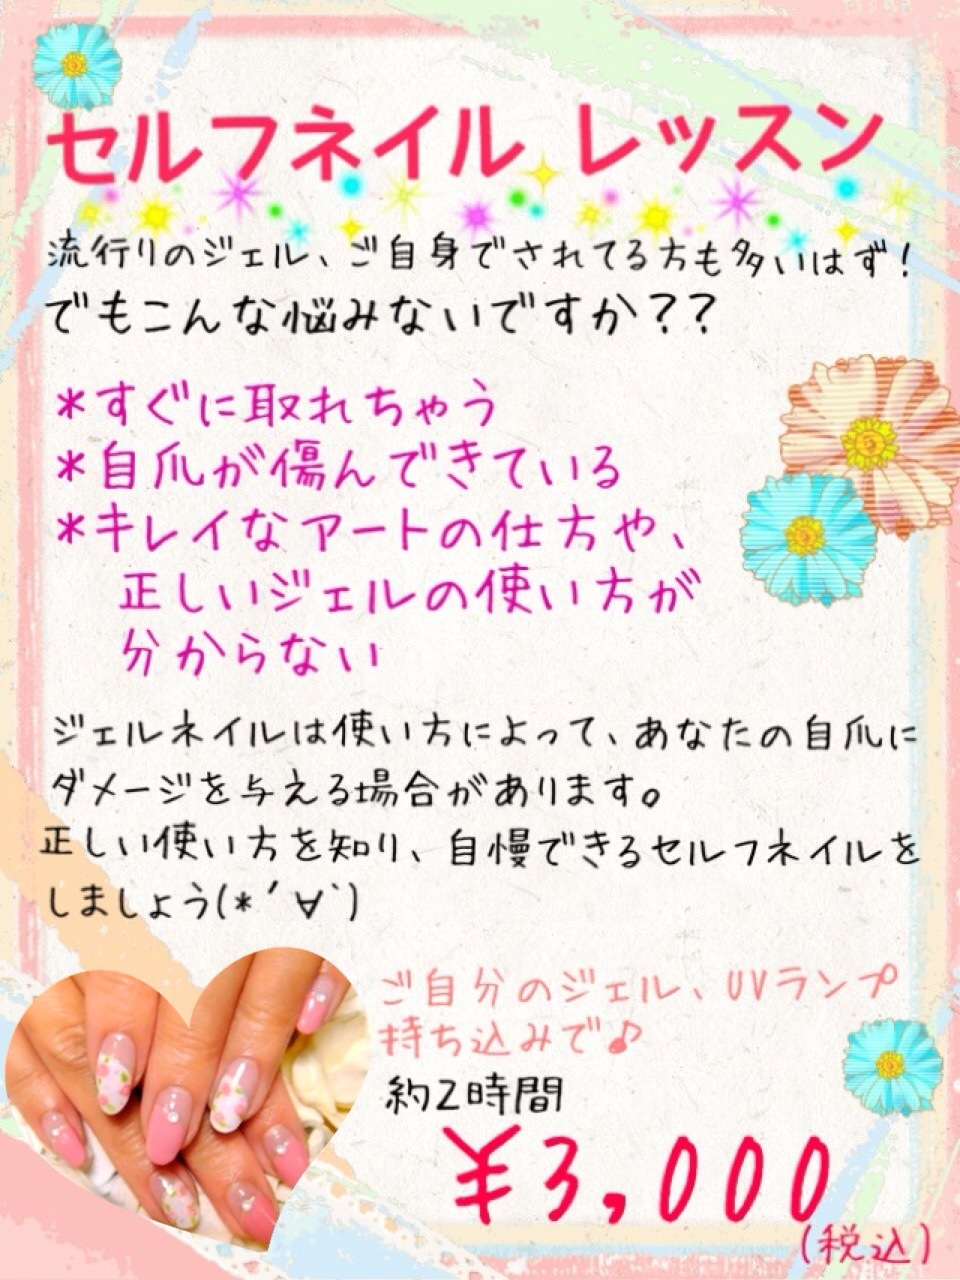 セルフネイル レッスン
流行りのジェル、ご自身でされてる方も多いはず！
でもこんな悩みないですか？？
*すぐに取れちゃう
*自爪が傷んできている
*キレイなアートの仕方や、
正しいジェルの使い方が
分からない
ジェルネイルは使い方によって、あなたの自爪に
ダメージを与える場合があります。
正しい使い方を知り、自慢できるセルフネイルを
しましょう(*´∀`)
ご自分のジェル、UVランプ
持ち込みで♪
約2時間
¥3,000
(税込)